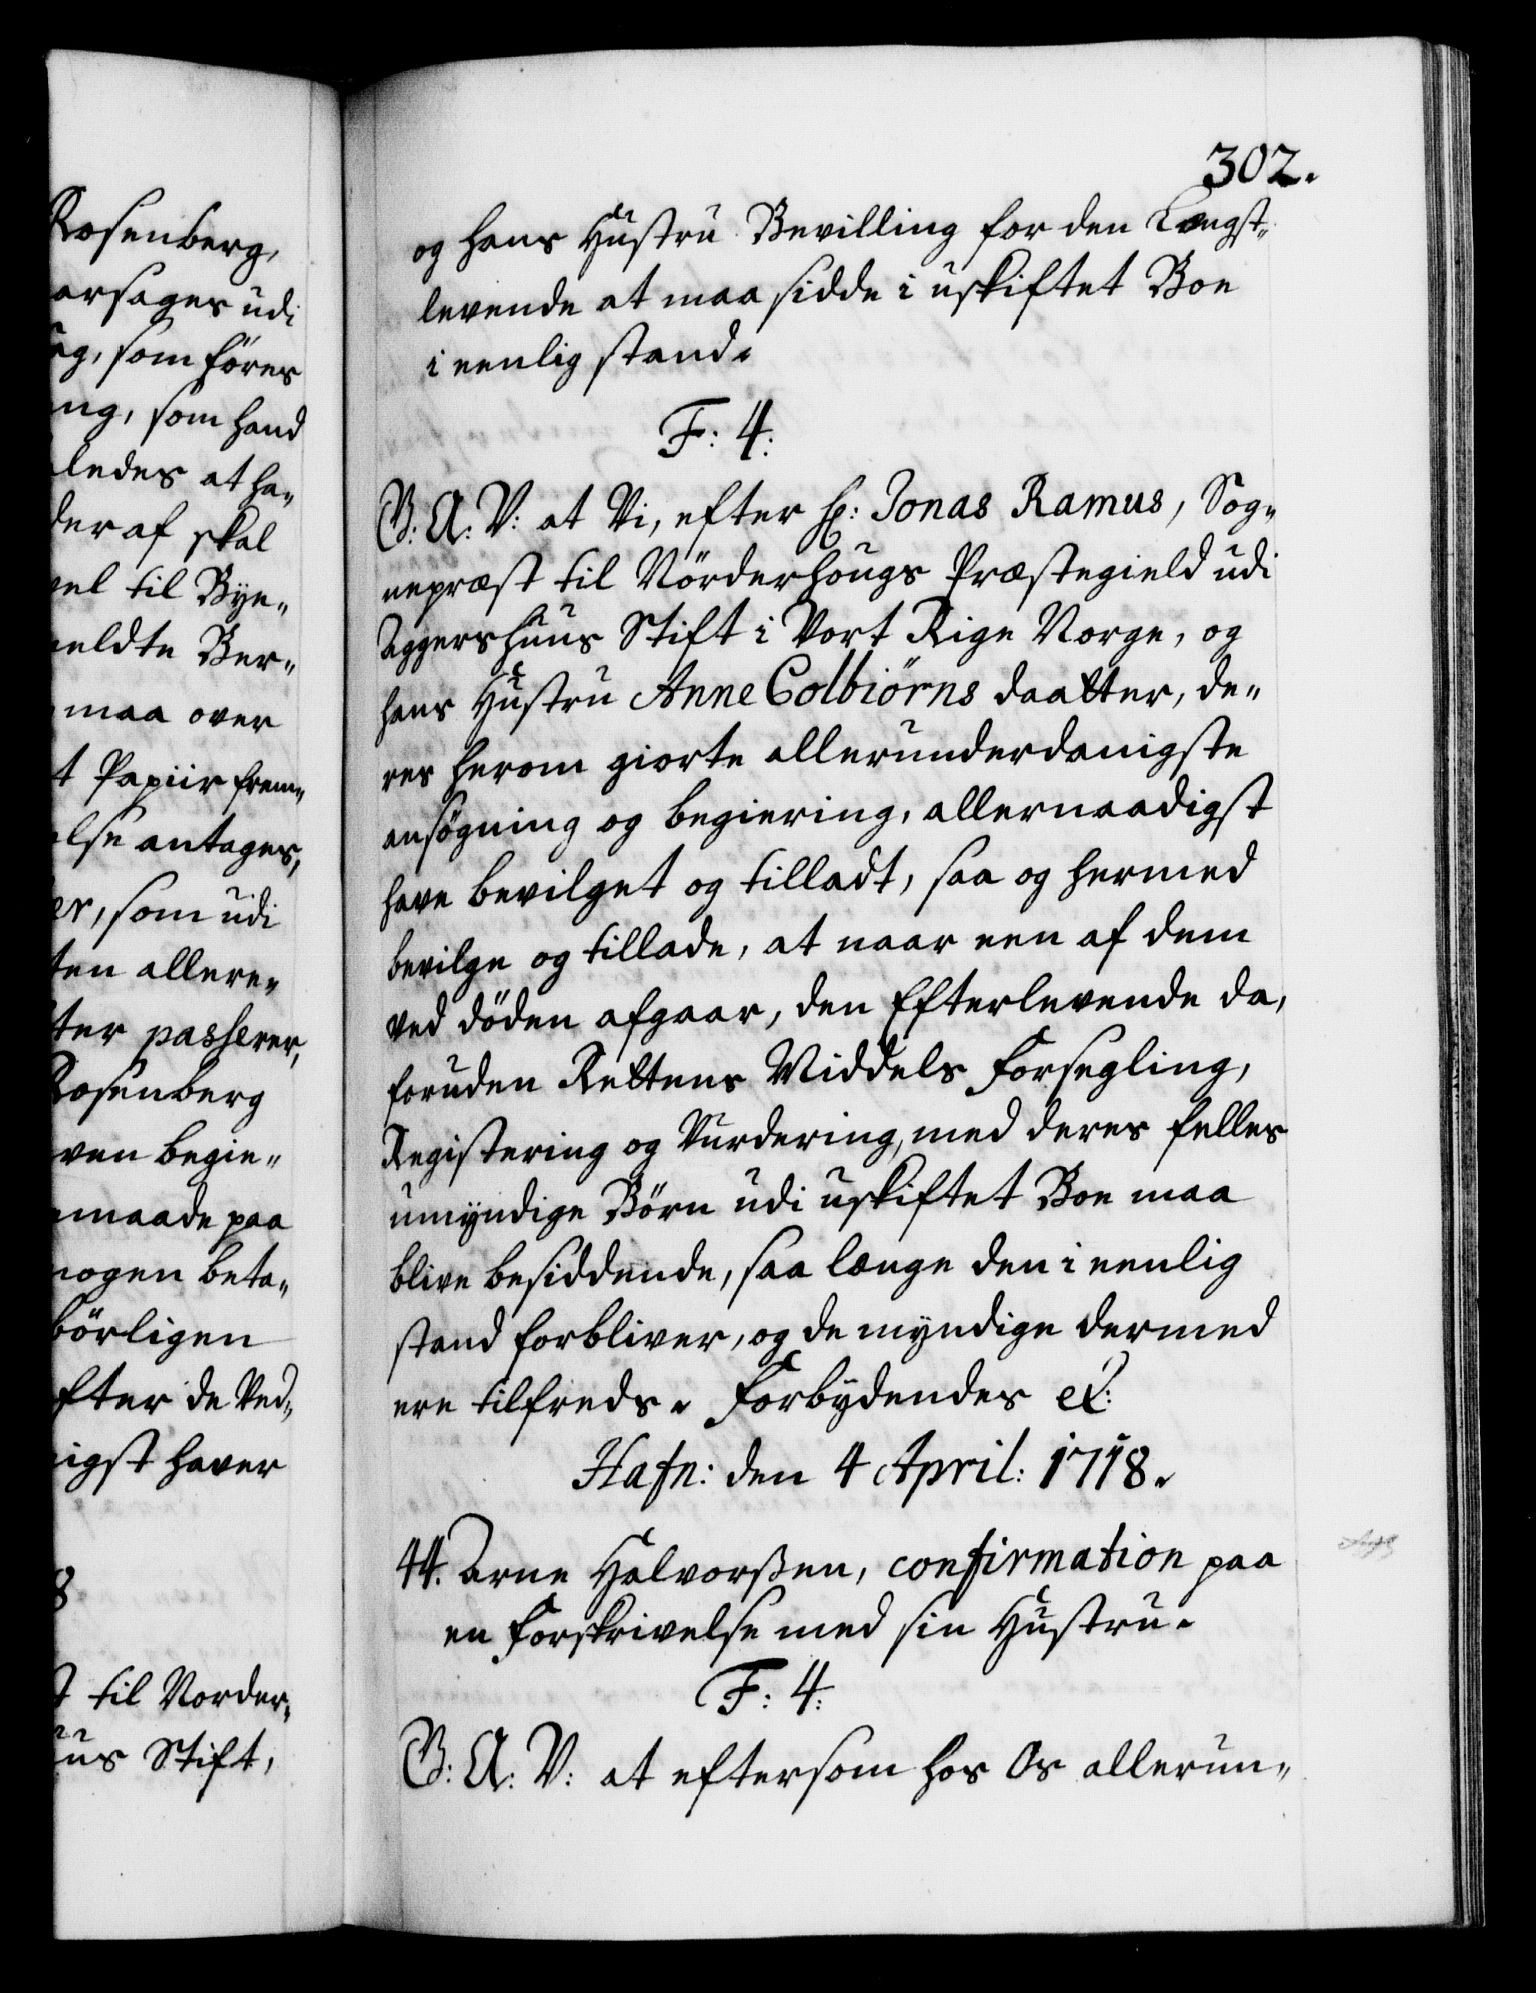 Rosenberg,
arsages udi
ng, som føres
ng, som hand
ledes at ha„
der af skal
vel til Bye„
meldte Ber„
maa over
t Papiir frem„
else antages,
er, som udi
ten allere„
ter passerer,
Rosenberg
ven begie„
maade paa
nogen beta„
børligen
fter de Ved„
nigst haver
8
t til Norder„
uus Stift,
302.
og hans Hustru Bevilling for den Længst„
levende at maa sidde i uskiftet Boe
i eenlig stand.
F: 4:
G: A: V: at Vi, efter Hr: Jonas Ramus, Sog„
nepræst til Nørderhougs Præstegield udi
Aggershuus Stift i Vort Rige Norge, og
hans Hustru Anne Colbiörns daatter, de„
res herom giorte allerunderdanigste
ansøgning og begiering, allernaadigst
have bevilget og tilladt, saa og hermed
bevilge og tillade, at naar een af dem
ved døden afgaar, den Efterlevende da,
foruden Rettens Middels Forsegling,
Registering og Vurdering, med deres felles
umyndige Børn udi uskiftet Boe maa
blive besiddende, saa længe den i eenlig
stand forbliver, og de myndige dermed
ere tilfreds. Forbydendes etc:
Hafn: den 4 April: 1718.
44. Arne Halvorßen, confirmation paa
en Forskrivelse med sin Hustru.
F: 4:
G: A: V: at eftersom hos Os allerun„